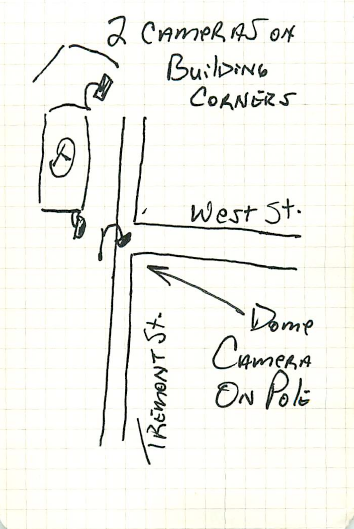 2 CAMERAS ON
BUILDING
CORNERS
T
West St.
TREMONT St.
Dome
CAMERA
ON POLE